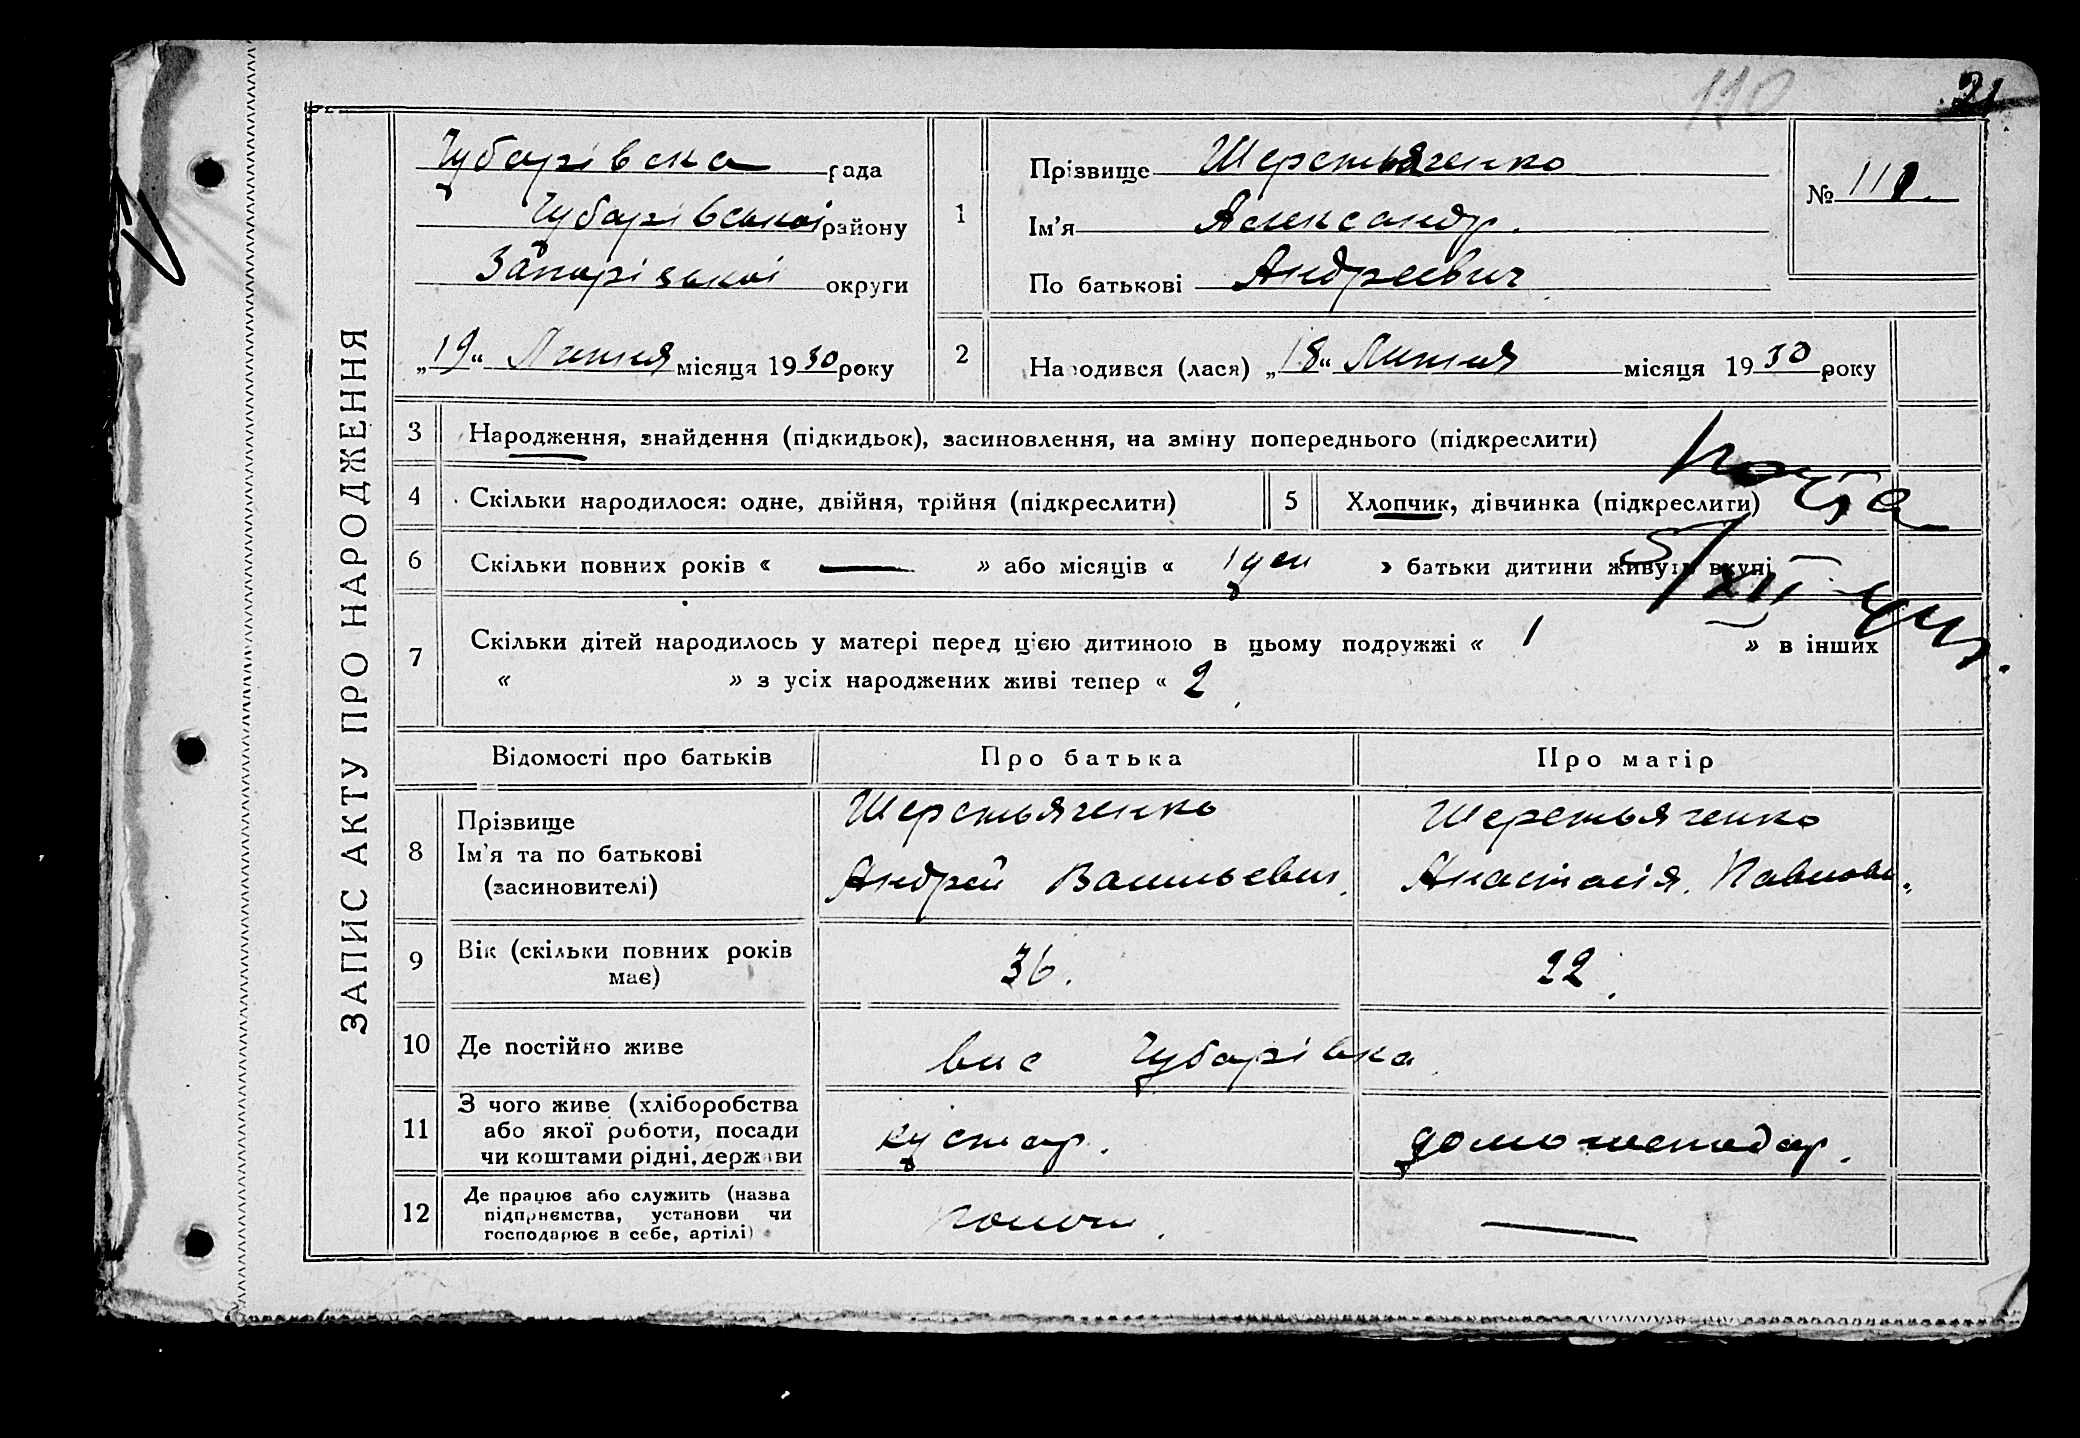 110
21
ЗАПИС АКТУ ПРО НАРОДЖЕННЯ
Чубарівська рада
Чубарівської району
Запорізької округи
„19“ Липня місяця 1930 року
1
Прізвище Шерстьяченко
Ім'я Александр.
По батькові Андреевич
№ 111.
2
Народився (лася) „18“ Липня місяця 1930 року
3 Народження, знайдення (підкидьок), засиновлення, на зміну попереднього (підкреслити)
4 Скільки народилося: одне, двійня, трійня (підкреслити)
5 Хлопчик, дівчинка (підкреслити)
6 Скільки повних років « — » або місяців « » батьки дитини живуть вкупі
7 Скільки дітей народилось у матері перед цією дитиною в цьому подружжі « 1 » в інших
« » з усіх народжених живі тепер « 2
5/XII
Відомості про батьків
Про батька
Про матір
8 Прізвище
Ім'я та по батькові
(засиновителі)
Шерстьяченко
Андрей Васильевич.
Шерстьяченко
Анастасія Павловн.
9 Вік (скільки повних років
має)
36.
22.
10 Де постійно живе
Чубарівка
11 З чого живе (хліборобства
або якої роботи, посади
чи коштами рідні, держави
кустар.
домогосподар.
12 Де працює або служить (назва
підприємства, установи чи
господарює в себе, артілі)
—